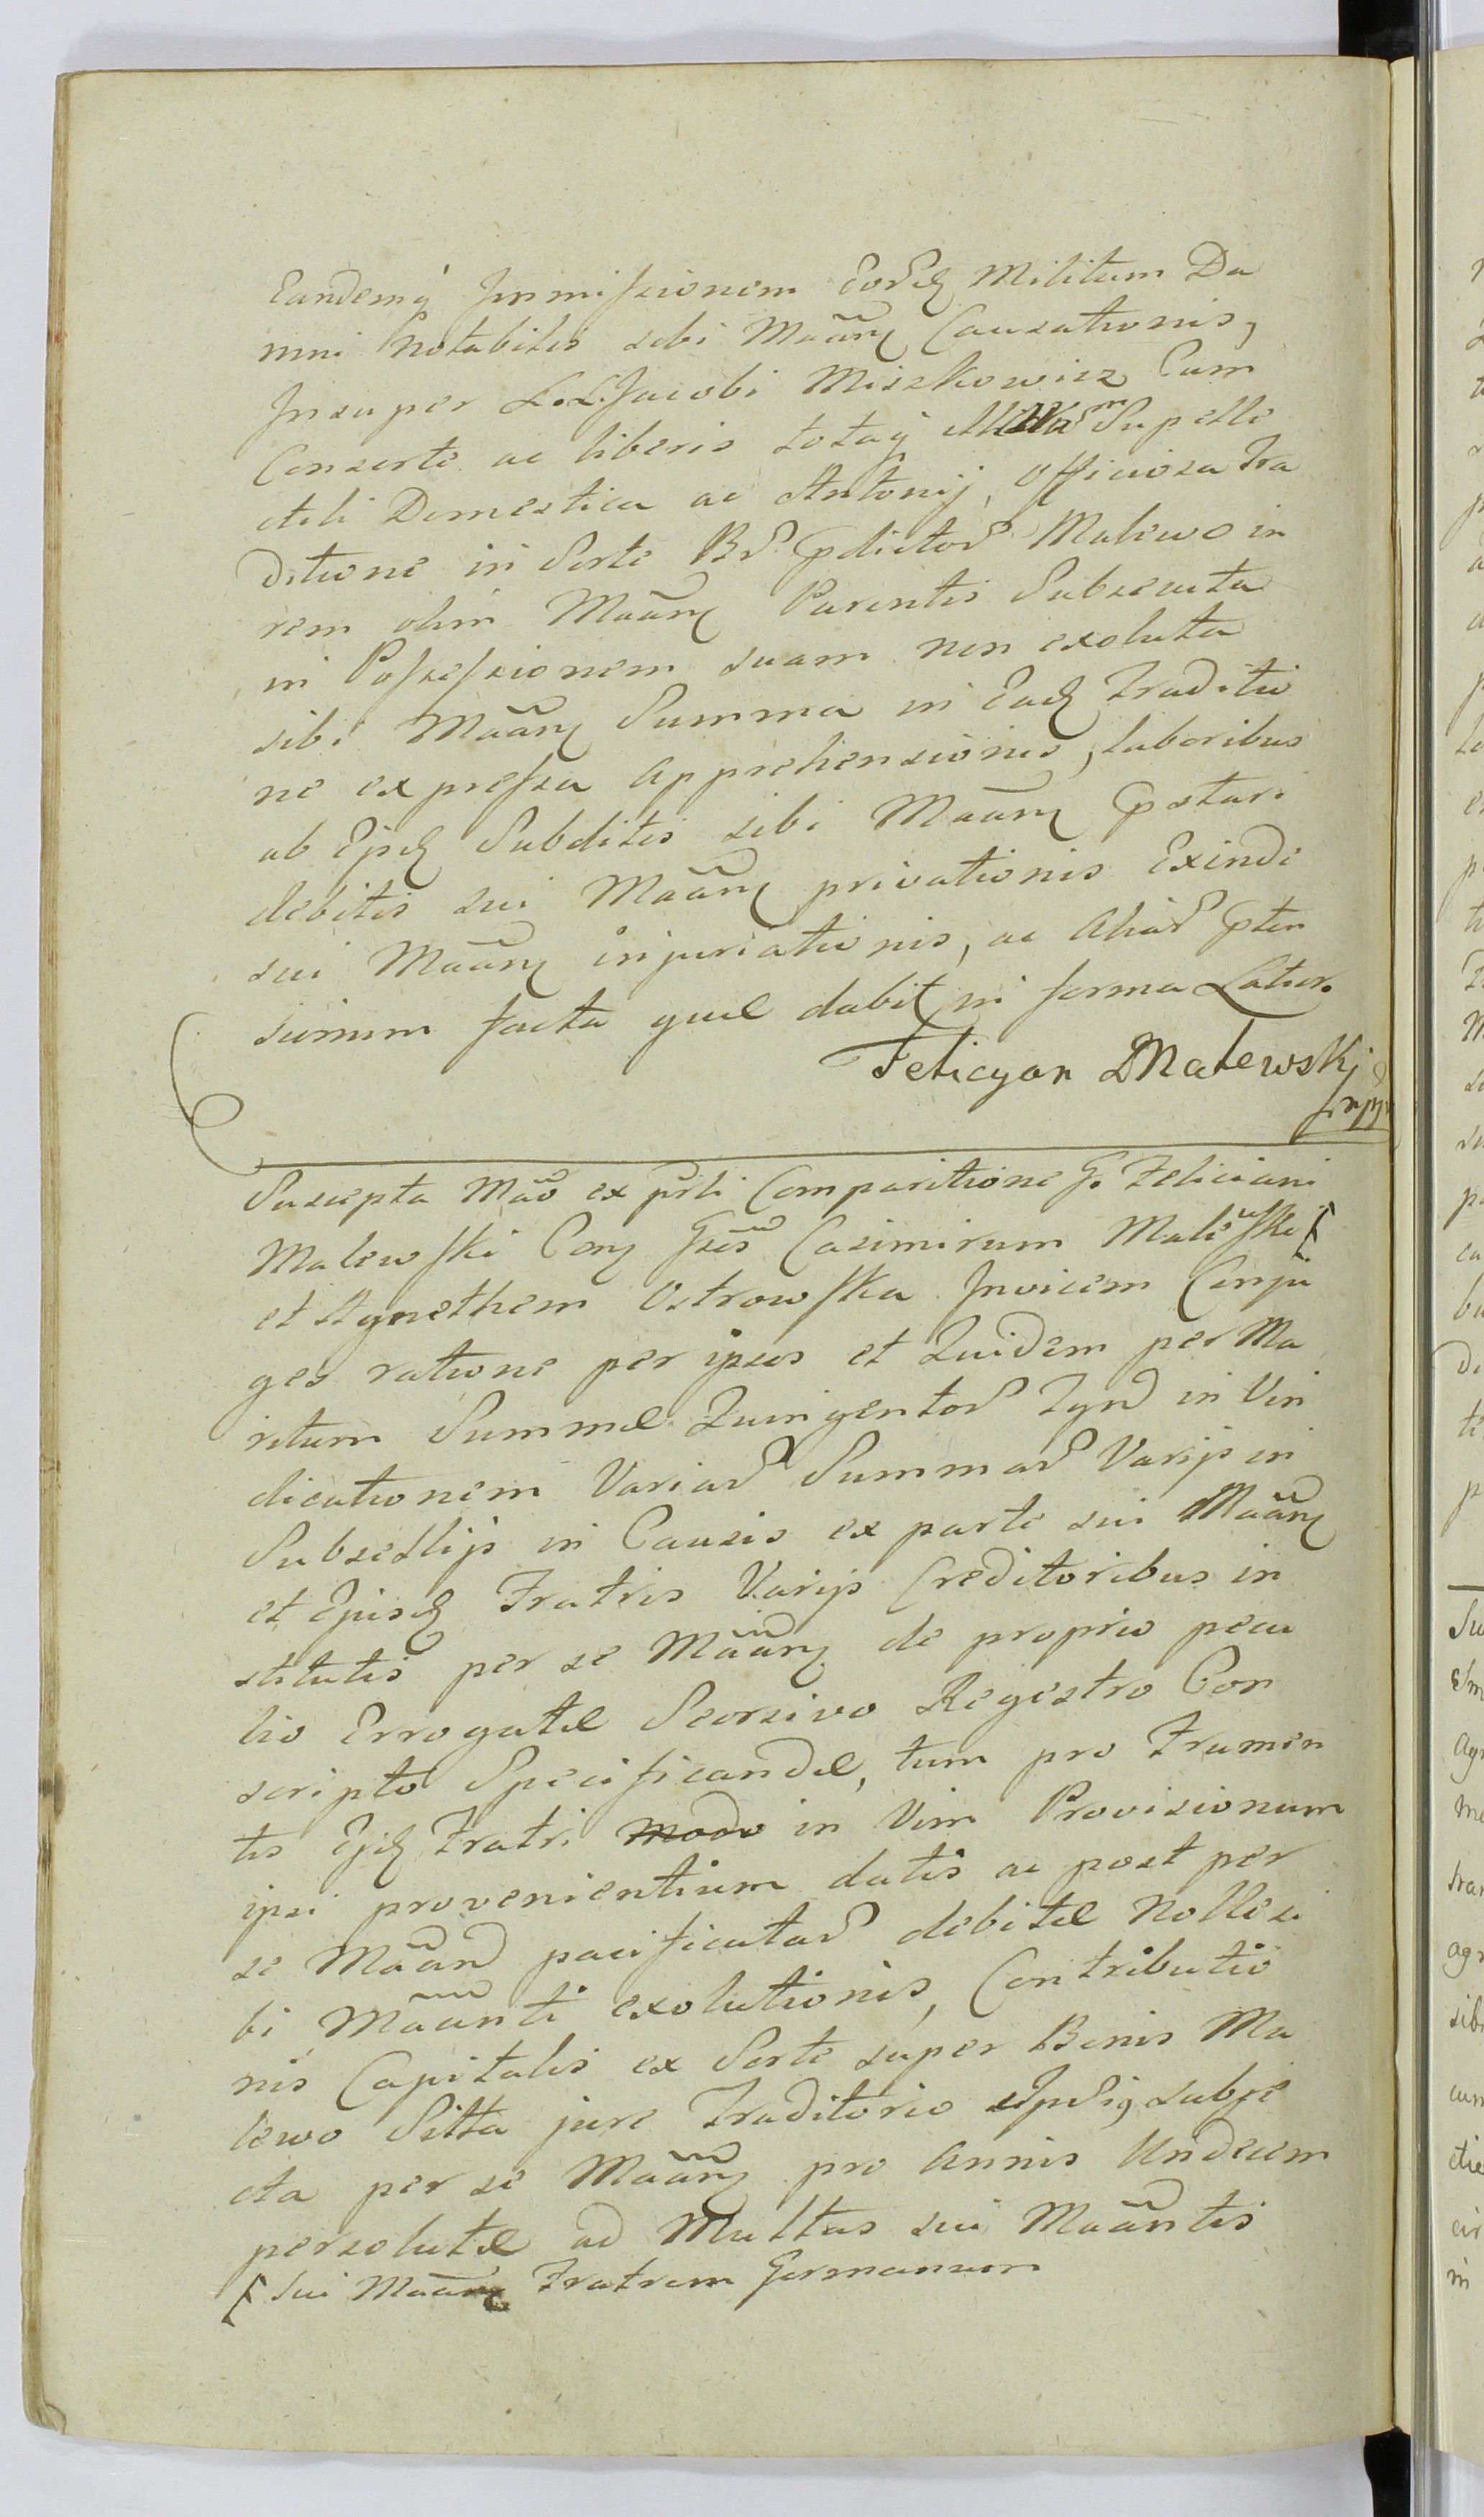 Eandemq́ Immissionem Eord Militum Da
mni Notabilis sibi Mãan Causationis,
Insuper L. L. Jacobi Miszkowicz Cum
Consorte ac liberis totaq́ Supelle
ctili Domestica ac Antonij, Officiosa Tra
ditione in Sorte Br. pdictor Malewo in
rem olim Mãan Parentis Subsecuta
in Possessionem suam non exoluta
sibi Mãan Summa in Ead Traditio
ne expressa apprehensionis, laboribus
ab Ejsd Subditis sibi Mãan pstari
debitis sui Mãan privationis Exinde
sui Mãan injuriationis, ac aliar pten
sionum facta quæ dabit in forma Latior.
Felicyan Malewskj
mpp
Suscepta Mão ex prli Comparitione G. Feliciani
Malewski Con Gsos Casimirum Malewski [
et Agnethem Ostrowska Invicem Conju
ges ratione per ipsos et Quidem per Ma
ritum Summæ Quingentor Tyn in Vin
dicationem Variar Summar Varijs in
Subsellijs in Causis ex parte sui Mãan
et Ejusd Fratris Varijs Creditoribus in
stitutis per se Mãan de proprio pecu
lio Errogatæ Seorsivo Regestro Con
scripto Specificandæ, tum pro Frumen
tis Ejsd Fratri modo in Vim Provisionum
ipsi provenientium datis ac post per
se Mãan pacificatar debitæ Nolle si
bi Mãanti exolutionis, Contributio
nis Capitalis ex Sorte super Bonis Ma
lewo Sitta jure Traditorio subje
cta per se Mãan pro Annis Undecim
persolutæ ad Multas sui Mãantis
[ sui Mãan Fratrem Germanum